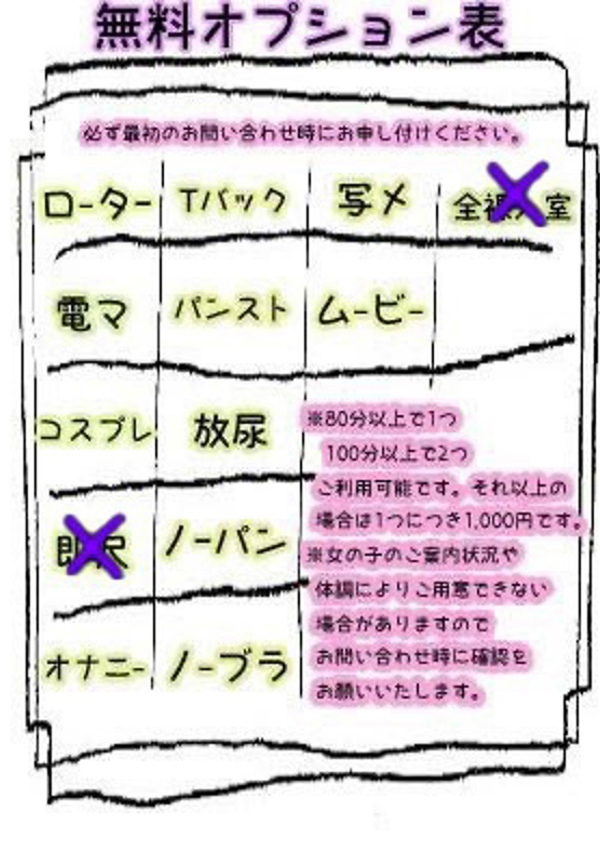 無料オプション表
必ず最初のお問い合わせ時にお申し付けください。
ローター Tバック 写メ 全裸 室
電マ パンスト ムービー
コスプレ 放尿
ノーパン
オナニー ノーブラ
※80分以上で1つ
100分以上で2つ
ご利用可能です。それ以上の
場合は1つにつき1,000円です。
※女の子のご案内状況や
体調によりご用意できない
場合がありますので
お問い合わせ時に確認を
お願いいたします。